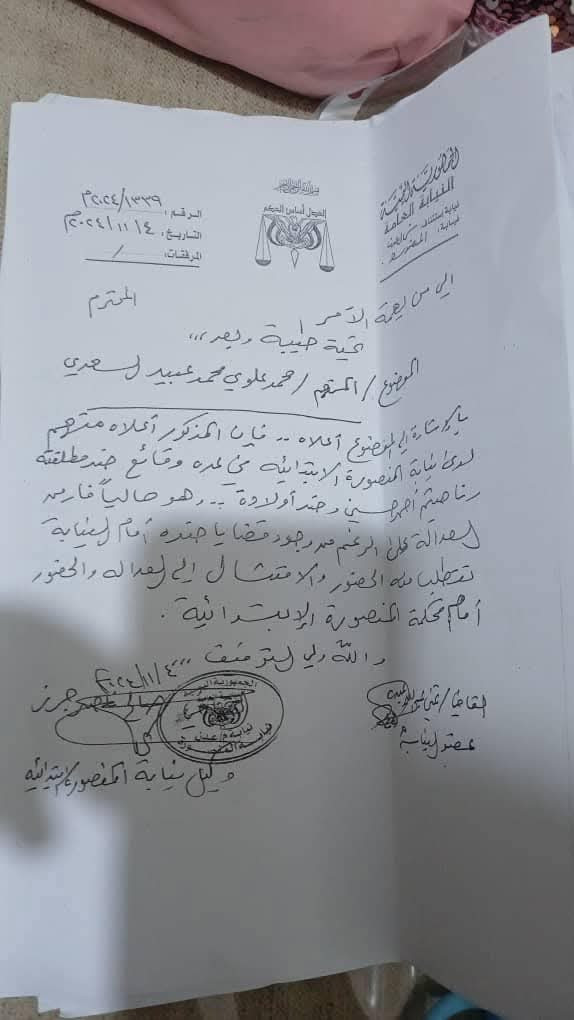 الجمهورية اليمنية
النيابة العامة
نيابة استئناف
نيابة: المنصورة
العدل أساس الحكم
الرقم: ١٣٣٩/٢٠٢٤م
التاريخ: ٤/١١/٢٠٢٤م
المرفقات: /
الى من يهمه الأمر المحترم
تحية طيبة وبعد،،،
الموضوع/ المتهم/ محمد علوي محمد عبيد السعدي
بالإشارة إلى الموضوع أعلاه .. فإن المذكور أعلاه متهم
لدى نيابة المنصورة الابتدائية في عدة وقائع ضد مطلقته
حسين وضد أولاده .. وهو حالياً فار من
العدالة على الرغم من وجود قضايا ضده أمام النيابة
تتطلب منه الحضور والامتثال الى العدالة والحضور
أمام محكمة المنصورة الابتدائية .
والله ولي التوفيق،،،
٤/١١/٢٠٢٤م
القاضي/
عضو النيابة
الجمهورية اليمنية
نيابة المنصورة
وكيل نيابة المنصورة الابتدائية